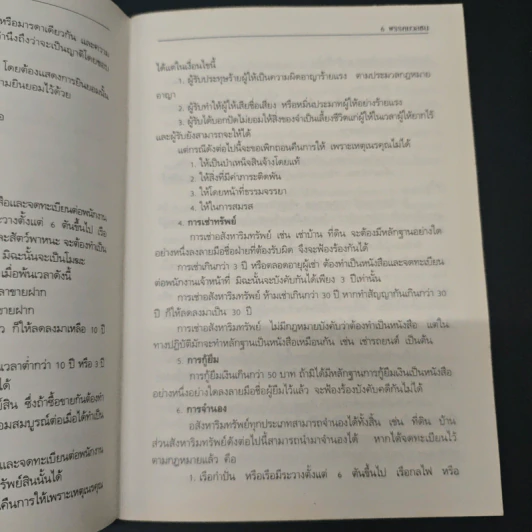 หรือมารดาเดียวกัน และความ
นึงถึงว่าจะเป็นญาติโดยชอบ
โดยต้องแสดงการยินยอมนั้น
ามยินยอมไว้ด้วย
สือและจดทะเบียนต่อพนักงาน
ระวางตั้งแต่ 6 ตันขึ้นไป เรือ
ละสัตว์พาหนะ จะต้องทำเป็น
มิฉะนั้นจะเป็นโมฆะ
เมื่อพ้นเวลาดังนี้
ลาขายฝาก
าขายฝาก
ว ก็ให้ลดลงมาเหลือ 10 ปี
เวลาต่ำกว่า 10 ปี หรือ 3 ปี
ได้
ย์สิน ซึ่งถ้าซื้อขายกันต้องทำ
อมสมบูรณ์ต่อเมื่อได้ทำเป็น
และจดทะเบียนต่อพนักงาน
รัพย์สินนั้นได้
คืนการให้เพราะเหตุเนรคุณ
ได้แต่ในเงื่อนไขนี้
1. ผู้รับประทุษร้ายผู้ให้เป็นความผิดอาญาร้ายแรง ตามประมวลกฎหมาย
อาญา
2. ผู้รับทำให้ผู้ให้เสียชื่อเสียง หรือหมิ่นประมาทผู้ให้อย่างร้ายแรง
3. ผู้รับได้บอกปัดไม่ยอมให้สิ่งของจำเป็นเลี้ยงชีวิตแก่ผู้ให้ในเวลาผู้ให้ยากไร้
และผู้รับยังสามารถจะให้ได้
แต่กรณีดังต่อไปนี้จะขอเพิกถอนคืนการให้ เพราะเหตุเนรคุณไม่ได้
1. ให้เป็นบำเหน็จสินจ้างโดยแท้
2. ให้สิ่งที่มีค่าภาระติดพัน
3. ให้โดยหน้าที่ธรรมจรรยา
4. ให้ในการสมรส
4. การเช่าทรัพย์
การเช่าอสังหาริมทรัพย์ เช่น เช่าบ้าน ที่ดิน จะต้องมีหลักฐานอย่างใด
อย่างหนึ่งลงลายมือชื่อฝ่ายที่ต้องรับผิด จึงจะฟ้องร้องกันได้
การเช่าเกินกว่า 3 ปี หรือตลอดอายุผู้เช่า ต้องทำเป็นหนังสือและจดทะเบียน
ต่อพนักงานเจ้าหน้าที่ มิฉะนั้นจะบังคับกันได้เพียง 3 ปีเท่านั้น
การเช่าอสังหาริมทรัพย์ ห้ามเช่าเกินกว่า 30 ปี หากทำสัญญากันเกินกว่า 30
ปี ก็ให้ลดลงมาเป็น 30 ปี
การเช่าสังหาริมทรัพย์ ไม่มีกฎหมายบังคับว่าต้องทำเป็นหนังสือ แต่ใน
ทางปฏิบัติมักจะทำหลักฐานเป็นหนังสือเหมือนกัน เช่น เช่ารถยนต์ เป็นต้น
5. การกู้ยืม
การกู้ยืมเงินเกินกว่า 50 บาท ถ้ามิได้มีหลักฐานการกู้ยืมเงินเป็นหนังสือ
อย่างหนึ่งอย่างใดลงลายมือชื่อผู้ยืมไว้แล้ว จะฟ้องร้องบังคับคดีกันไม่ได้
6. การจำนอง
อสังหาริมทรัพย์ทุกประเภทสามารถจำนองได้ทั้งสิ้น เช่น ที่ดิน บ้าน
ส่วนสังหาริมทรัพย์ดังต่อไปนี้สามารถนำมาจำนองได้ หากได้จดทะเบียนไว้
ตามกฎหมายแล้ว คือ
1. เรือกำปั่น หรือเรือมีระวางตั้งแต่ 6 ตันขึ้นไป เรือกลไฟ หรือ